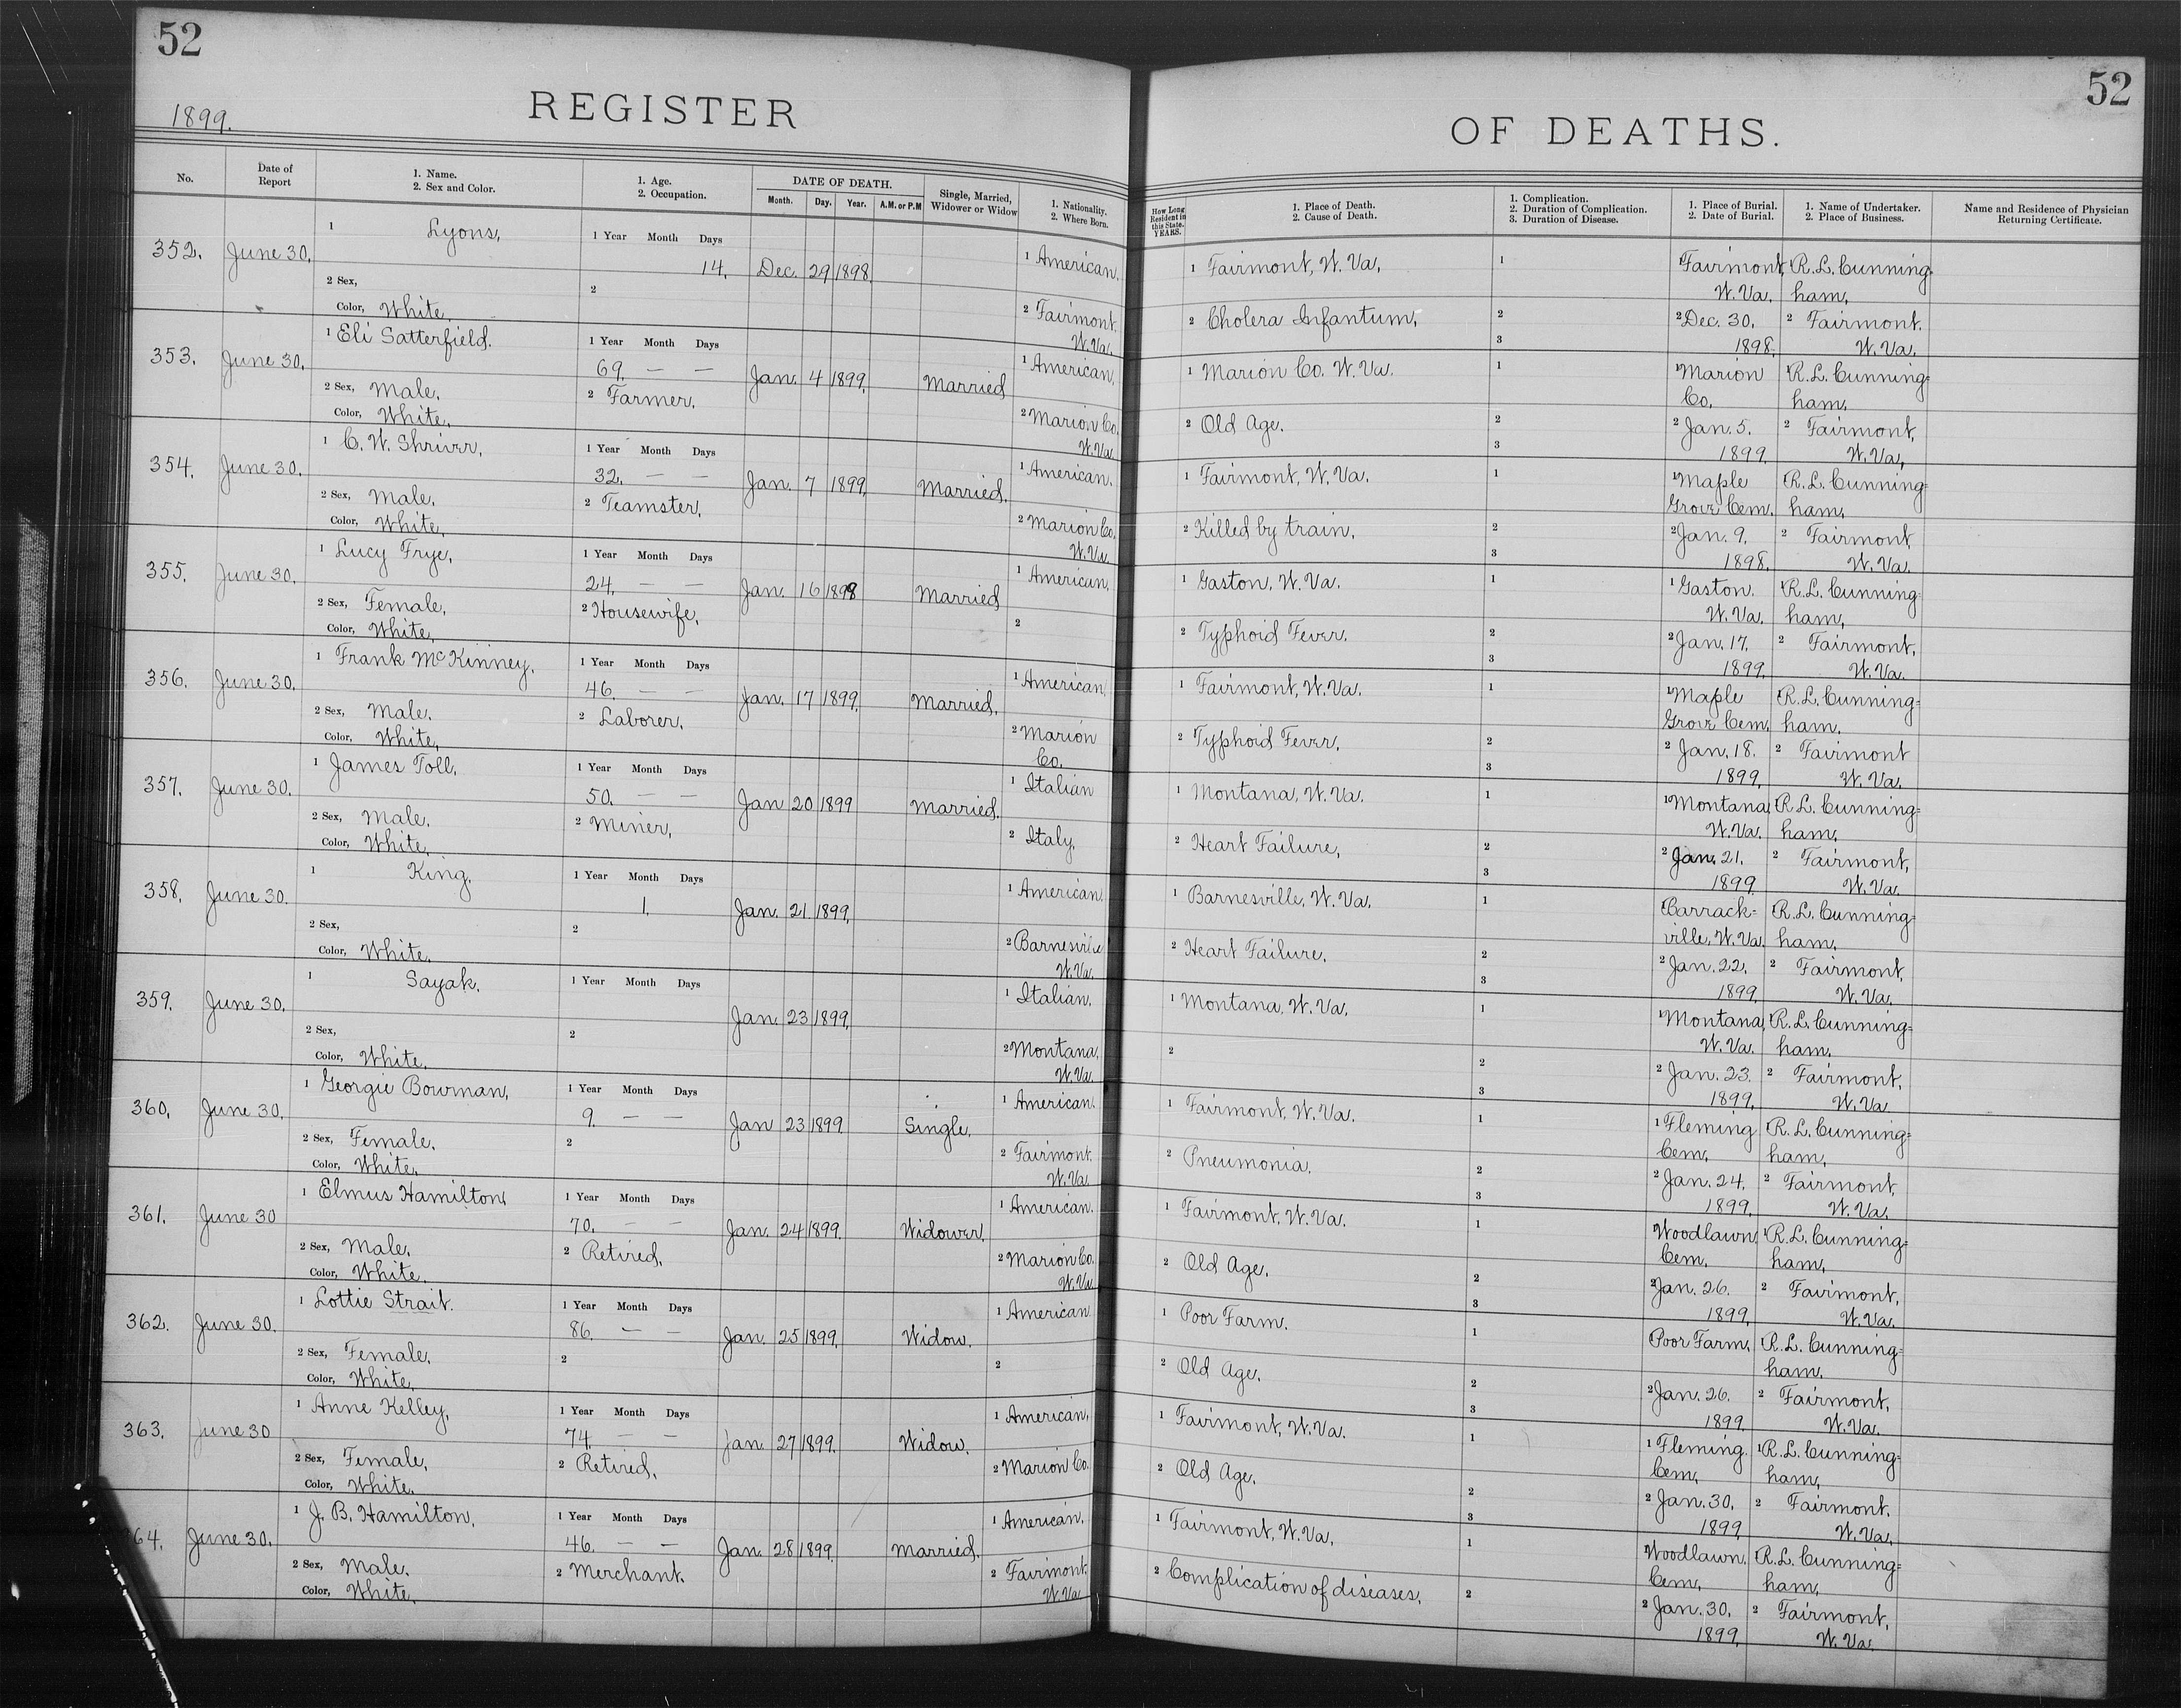 52
1899.
REGISTER
No.
Date of
Report
1. Name.
2. Sex and Color.
1. Age.
2. Occupation.
DATE OF DEATH.
Month. Day. Year. A.M. or P.M
Single, Married,
Widower or Widow
1. Nationality.
2. Where Born.
352. June 30.
1 Lyons,
2 Sex,
Color, White.
1 Year Month Days
14.
2
Dec. 29 1898
1 American.
2 Fairmont.
W.Va.
353. June 30.
1 Eli Satterfield.
2 Sex, Male.
Color, White.
1 Year Month Days
69. — —
2 Farmer.
Jan. 4 1899.
Married
1 American.
2 Marion Co.
W.Va.
354. June 30.
1 C. W. Shriver,
2 Sex, Male.
Color, White.
1 Year Month Days
32. — —
2 Teamster.
Jan. 7 1899.
Married.
1 American.
2 Marion Co.
W.Va.
355. June 30.
1 Lucy Frye,
2 Sex, Female,
Color, White.
1 Year Month Days
24. — —
2 Housewife,
Jan. 16 1899
Married
1 American.
2
356. June 30.
1 Frank McKinney.
2 Sex, Male.
Color, White.
1 Year Month Days
46. — —
2 Laborer.
Jan. 17 1899.
Married.
1 American.
2 Marion
Co.
357. June 30.
1 James Toll.
2 Sex, Male.
Color, White.
1 Year Month Days
50. — —
2 Miner,
Jan 20 1899
Married.
1 Italian
2 Italy.
358. June 30.
1 King.
2 Sex,
Color, White.
1 Year Month Days
1.
2
Jan. 21 1899.
1 American.
2 Barnesville
W.Va.
359. June 30.
1 Sayak.
2 Sex,
Color, White.
1 Year Month Days
2
Jan. 23 1899.
1 Italian.
2 Montana.
W.Va.
360. June 30.
1 Georgie Bowman,
2 Sex, Female.
Color, White.
1 Year Month Days
9. — —
2
Jan 23 1899
Single.
1 American.
2 Fairmont.
W.Va.
361. June 30
1 Elmus Hamilton
2 Sex, Male.
Color, White.
1 Year Month Days
70. — —
2 Retired.
Jan. 24 1899.
Widower.
1 American.
2 Marion Co.
W.Va.
362. June 30.
1 Lottie Strait.
2 Sex, Female.
Color, White.
1 Year Month Days
86. — —
2
Jan. 25 1899.
Widow.
1 American
2
363. June 30
1 Anne Kelley,
2 Sex, Female,
Color, White.
1 Year Month Days
74. — —
2 Retired.
Jan. 27 1899.
Widow.
1 American,
2 Marion Co.
64. June 30.
1 J. B. Hamilton.
2 Sex, Male.
Color, White.
1 Year Month Days
46. — —
2 Merchant.
Jan. 28 1899.
Married.
1 American.
2 Fairmont.
W.Va.
52
OF DEATHS.
How Long
Resident in
this State.
YEARS.
1. Place of Death.
2. Cause of Death.
1. Complication.
2. Duration of Complication.
3. Duration of Disease.
1. Place of Burial.
2. Date of Burial.
1. Name of Undertaker.
2. Place of Business.
Name and Residence of Physician
Returning Certificate.
1 Fairmont, W. Va.
2 Cholera Infantum,
1
2
3
1 Fairmont,
W. Va.
2 Dec. 30.
1898.
1 R. L. Cunning-
ham,
2 Fairmont.
W. Va.
1 Marion Co. W. Va.
2 Old Age.
1
2
3
1 Marion
Co.
2 Jan. 5.
1899.
1 R. L. Cunning=
ham.
2 Fairmont,
W. Va,
1 Fairmont, W. Va.
2 Killed by train.
1
2
3
1 Maple
Grove Cem.
2 Jan. 9.
1898.
R. L. Cunning=
ham.
2 Fairmont,
W. Va.
1 Gaston, W. Va.
2 Typhoid Fever.
1
2
3
1 Gaston.
W. Va.
2 Jan. 17.
1899.
1 R. L. Cunning=
ham,
2 Fairmont,
W. Va.
1 Fairmont, W. Va.
2 Typhoid Fever,
1
2
3
1 Maple
Grove Cem.
2 Jan. 18.
1899.
1 R. L. Cunning=
ham.
2 Fairmont
W. Va.
1 Montana, W. Va.
2 Heart Failure,
1
2
3
1 Montana,
W. Va.
2 Jan. 21.
1899.
1 R. L. Cunning=
ham.
2 Fairmont,
W. Va.
1 Barnesville, W. Va.
2 Heart Failure.
1
2
3
Barrack=
ville, W. Va.
2 Jan. 22.
1899.
1 R. L. Cunning=
ham.
2 Fairmont,
W. Va.
1 Montana, W. Va.
2
1
2
3
1 Montana,
W. Va.
2 Jan. 23.
1899.
1 R. L. Cunning=
ham.
2 Fairmont,
W. Va
1 Fairmont, W. Va.
2 Pneumonia.
1
2
3
1 Fleming
Cem.
2 Jan. 24.
1899.
1 R. L. Cunning=
ham,
2 Fairmont,
W. Va.
1 Fairmont, W. Va.
2 Old Age.
1
2
3
Woodlawn
Cem.
2 Jan. 26.
1899.
1 R. L. Cunning=
ham,
2 Fairmont,
W. Va.
1 Poor Farm.
2 Old Age.
1
2
3
Poor Farm.
2 Jan. 26.
1899.
1 R. L. Cunning=
ham.
2 Fairmont,
W. Va.
1 Fairmont, W. Va.
2 Old Age.
1
2
3
1 Fleming.
Cem,
2 Jan. 30.
1899
1 R. L. Cunning=
ham,
2 Fairmont.
W. Va.
1 Fairmont, W. Va.
2 Complication of diseases.
1
2
Woodlawn.
Cem.
2 Jan. 30.
1899.
1 R. L. Cunning=
ham,
2 Fairmont,
W. Va.